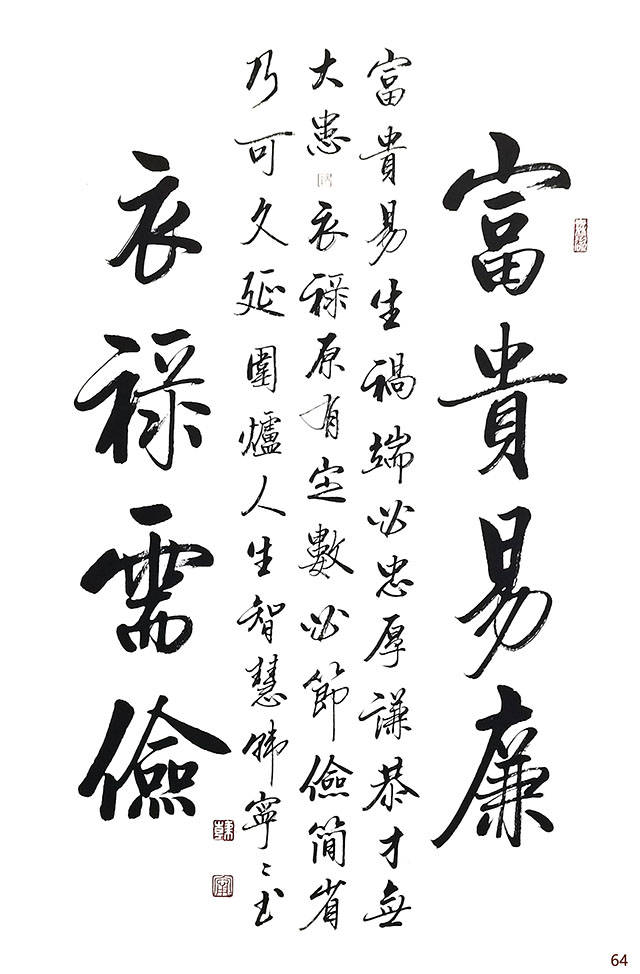 富貴易廉
富貴易生禍端必忠厚謙恭才無
大患衣祿原有定數必節儉簡省
乃可久延圍爐人生智慧韩寧〻书
衣祿需儉
64